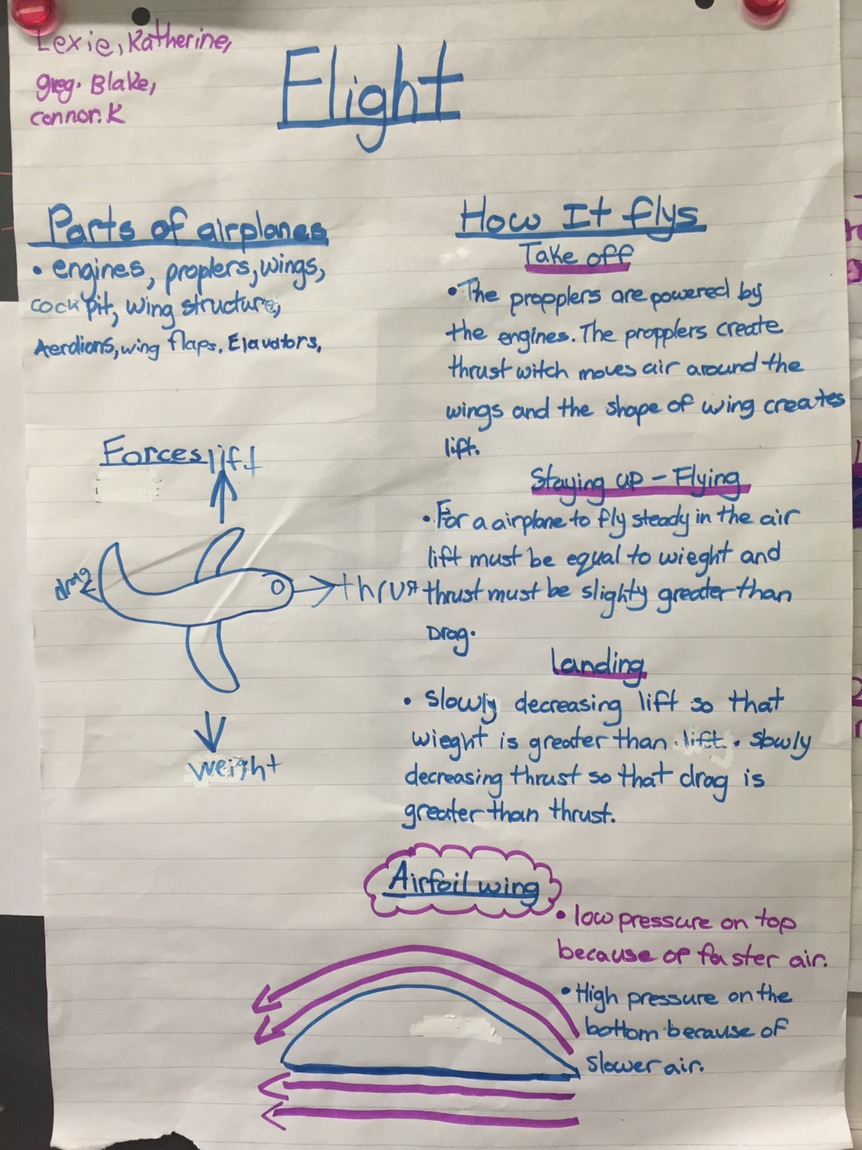 Lexie, Katherine,
greg. Blake,
connor.K
Flight
Parts of airplanes
• engines, proplers, wings,
cockpit, wing structure,
Aerdions, wing flaps, Elavators,
Forces
lift
drag
thrust
weight
How It flys
Take off
• The propplers are powered by
the engines. The propplers create
thrust witch moves air around the
wings and the shape of wing creates
lift.
Staying up - Flying
• For a airplane to fly steady in the air
lift must be equal to wieght and
thrust must be slighty greater than
Drag.
Landing
• Slowly decreasing lift so that
wieght is greater than lift. Slowly
decreasing thrust so that drag is
greater than thrust.
Airfoil wing
• low pressure on top
because of faster air.
• High pressure on the
bottom because of
slower air.